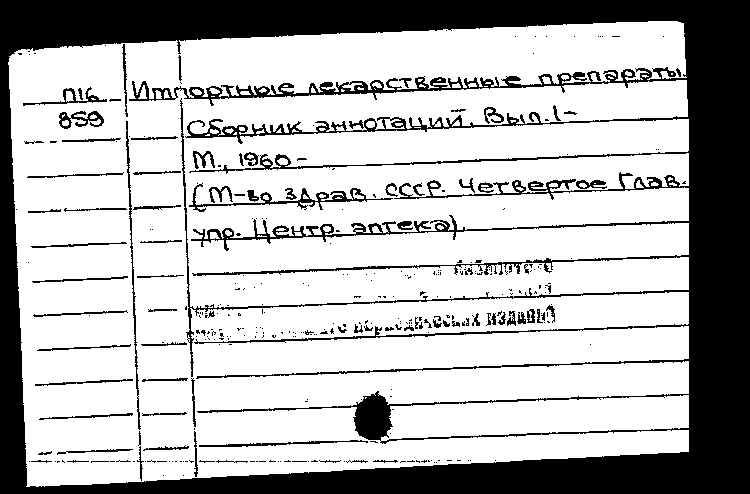 П16 Импортные лекарственные препараты.
859 Сборник аннотаций. Вып. 1-
М., 1960-
(М-во здрав. СССР. Четвертое Глав.
упр. Центр. аптека).
библиотеко
периодических изданий